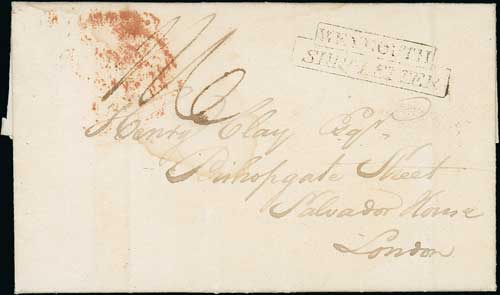 WEYMOUTH
SHIP LETTER
Henry Clay Esqr.
Bishopgate Street
Salvador House
London